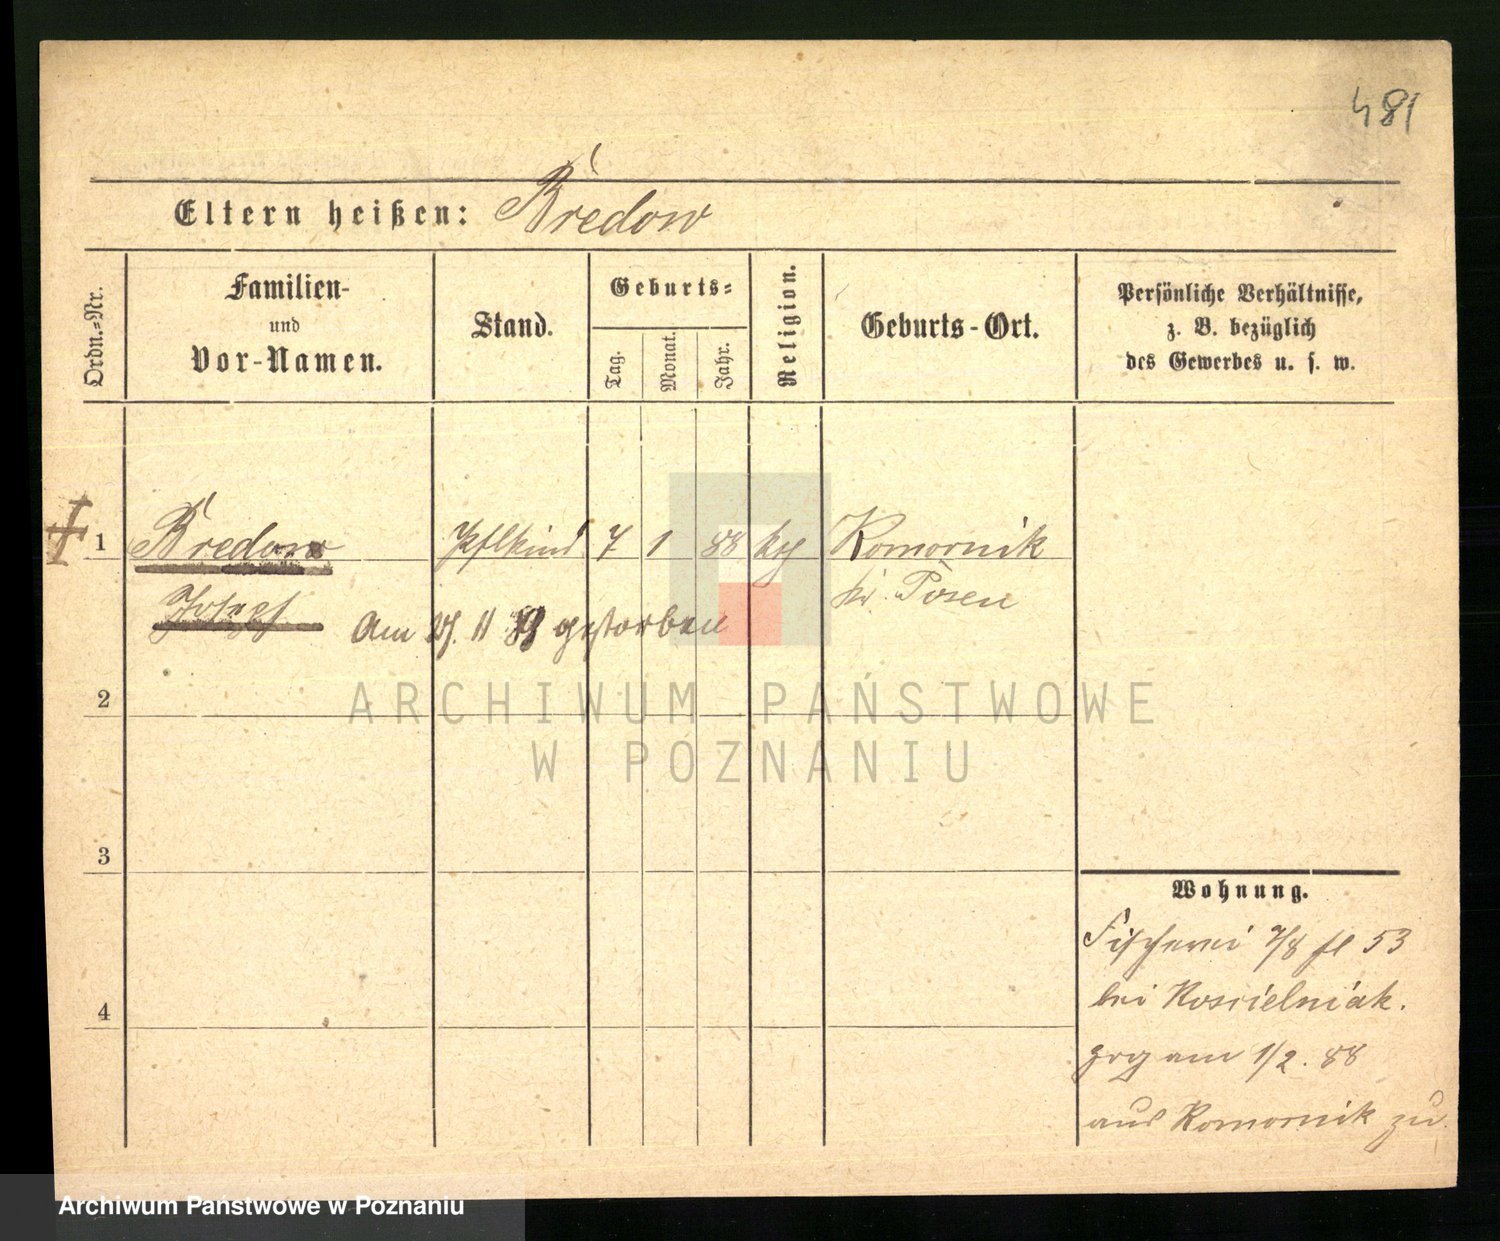 481
Eltern heißen: Bredow
Ordn.-Nr.
Familien-
und
Vor-Namen.
Stand.
Geburts-
Tag.
Monat.
Jahr.
Religion.
Geburts-Ort.
Persönliche Verhältnisse,
z. B. bezüglich
des Gewerbes u. s. w.
1 Bredow Pflkind 7 1 88 kth Komornik
Josef kr. Posen
Am 11 gestorben
2
ARCHIWUM PAŃSTWOWE
W POZNANIU
3
4
Wohnung.
Fischerei 7/8 fl 53
bei Koscielniak.
zog am 1/2. 88
aus Komornik zu.
Archiwum Państwowe w Poznaniu